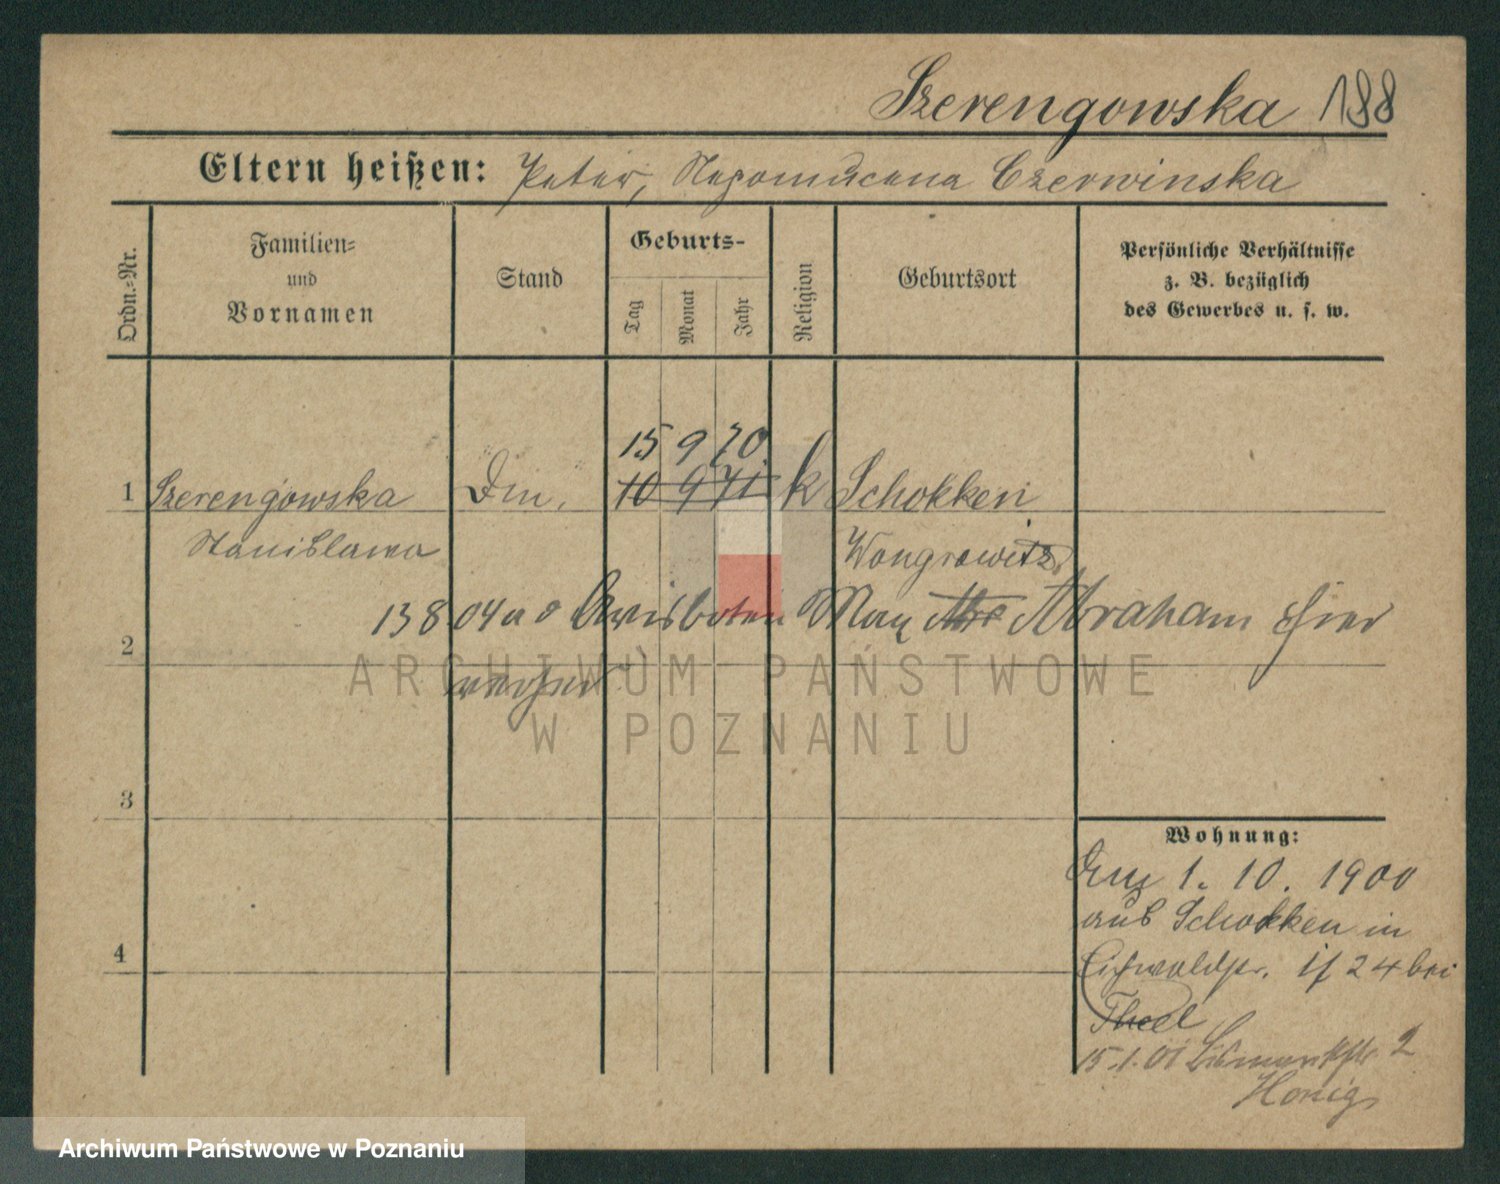 Szerengowska 188
Eltern heißen: Peter, Nepomucena Czerwinska
Ordn.-Nr.
Familien-
und
Vornamen
Stand
Geburts-
Tag
Monat
Jahr
Religion
Geburtsort
Persönliche Verhältnisse
z. B. bezüglich
des Gewerbes u. s. w.
15 9 70.
1 Szerengowska Din. 10 9 71 k Schokken
Stanislawa Wongrowitz
13 8 04 Max Abraham hier
2
ARCHIWUM PAŃSTWOWE
W POZNANIU
3
Wohnung:
Zuz 1. 10. 1900
aus Schokken in
4
Eichwaldstr. 24 bei
Theel
15.1.01 Bismarckstr. 2
Honig
Archiwum Państwowe w Poznaniu